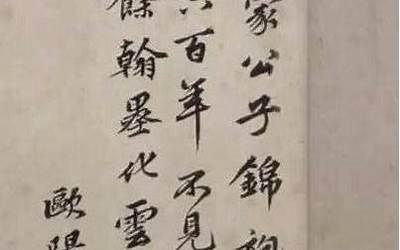 公子錦袍
百年不見
餘翰墨化雲
歐陽